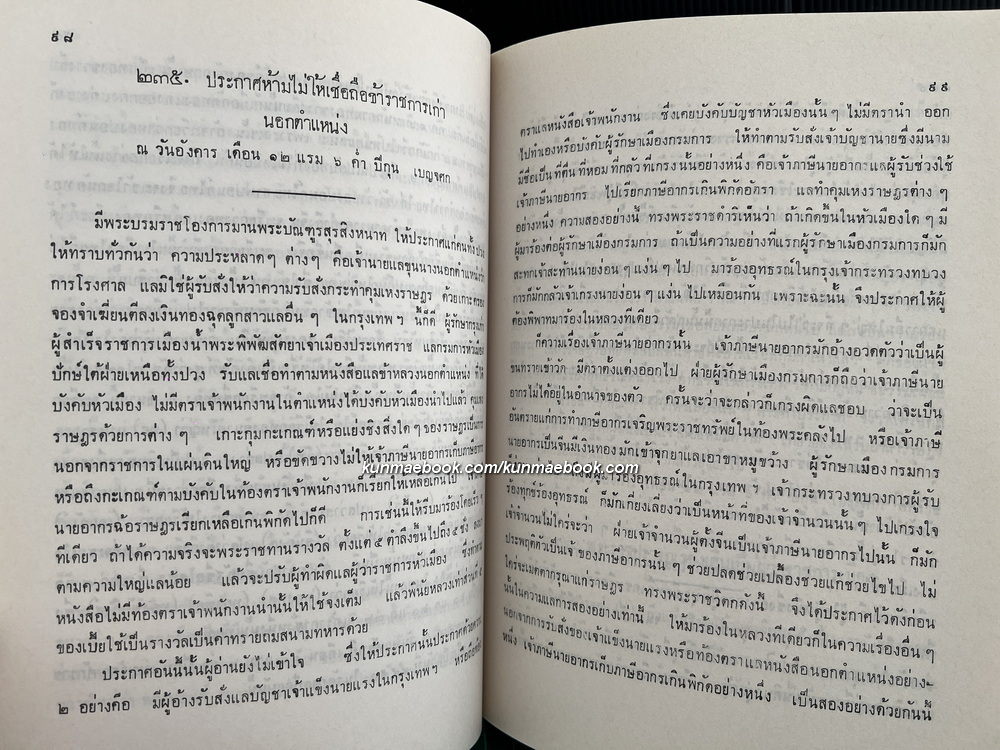 ๙๘
๒๓๕. ประกาศห้ามไม่ให้เชื่อถือข้าราชการเก่า
นอกตำแหน่ง
ณ วันอังคาร เดือน ๑๒ แรม ๖ ค่ำ ปีกุน เบญจศก
มีพระบรมราชโองการมานพระบัณฑูรสุรสิงหนาท ให้ประกาศแก่คนทั้งปวง
ให้ทราบทั่วกันว่า ความประหลาดๆ ต่างๆ คือเจ้านายแลขุนนางนอกตำแหน่งว่า
การโรงศาล แลมิใช่ผู้รับสั่งให้ว่าความรับสั่งกระทำคุมเหงราษฎร ด้วยเกาะครอง
จองจำเฆี่ยนตีลงเงินทองฉุดลูกสาวแลอื่น ๆ ในกรุงเทพ ฯ นี้ก็ดี ผู้รักษากรมการ
ผู้สำเร็จราชการเมืองน้ำพระพิพัฒสัตยาเจ้าเมืองประเทศราช แลกรมการหัวเมือง
ปักษ์ใต้ฝ่ายเหนือทั้งปวง รับแลเชื่อทำตามหนังสือแลข้าหลวงนอกตำแหน่ง ที่ให้
บังคับหัวเมือง ไม่มีตราเจ้าพนักงานในตำแหน่งได้บังคับหัวเมืองนำไปแล้ว
ราษฎรด้วยการต่าง ๆ เกาะกุมกะเกณฑ์หรือแย่งชิงสิ่งใด ๆ ของราษฎรเป็นการ
นอกจากราชการในแผ่นดินใหญ่ หรือขัดขวางไม่ให้เจ้าภาษีนายอากรเก็บภาษีอากร
หรือถึงกะเกณฑ์ตามบังคับในท้องตราเจ้าพนักงานก็เรียกให้เหลือเกินไป
นายอากรฉ้อราษฎรเรียกเหลือเกินพิกัดไปก็ดี การเช่นนี้ให้รีบมาร้องโดยเร็ว ๆ
ทีเดียว ถ้าได้ความจริงจะพระราชทานรางวัล ตั้งแต่ ๕ ตำลึงขึ้นไปถึง ๕ ชั่ง
ตามความใหญ่แลน้อย แล้วจะปรับผู้ทำผิดแลผู้ว่าราชการหัวเมือง ซึ่งทำตาม
หนังสือไม่มีท้องตราเจ้าพนักงานนำนั้นให้ใช้จงเต็ม แล้วพินัยหลวงเท่าส่วนที่
ของเบี้ยใช้เป็นรางวัลเป็นค่าทรายถมสนามทหารด้วย
ประกาศอันนี้นั้นผู้อ่านยังไม่เข้าใจ ซึ่งให้ประกาศนั้นประกาศด้วยความ
๒ อย่างคือ มีผู้อ้างรับสั่งแลบัญชาเจ้าแข็งนายแรงในกรุงเทพ ฯ หรือถือหนังสือ
๙๙
ตราแลหนังสือเจ้าพนักงาน ซึ่งเคยบังคับบัญชาหัวเมืองนั้น ๆ ไม่มีตรานำ ออก
ไปทำเองหรือบังคับผู้รักษาเมืองกรมการ ให้ทำตามรับสั่งเจ้าบัญชานายซึ่งมีนาม
มีชื่อเป็นที่ตื่นที่หอมที่กลัวที่เกรงนั้นอย่างหนึ่ง คือเจ้าภาษีนายอากรแลผู้รับช่วงใช้
เจ้าภาษีนายอากร ไปเรียกภาษีอากรเกินพิกัดอัตรา แลทำคุมเหงราษฎรต่าง ๆ
อย่างหนึ่ง ความสองอย่างนี้ ทรงพระราชดำริเห็นว่า ถ้าเกิดขึ้นในหัวเมืองใด ๆ มี
ผู้มาร้องต่อผู้รักษาเมืองกรมการ ถ้าเป็นความอย่างที่แรกผู้รักษาเมืองกรมการก็มัก
สะทกเจ้าสะท้านนายง่อน ๆ แง่น ๆ ไป มาร้องอุทธรณ์ในกรุงเจ้ากระทรวงทบวง
การก็มักกลัวเจ้าเกรงนายง่อน ๆ แง่น ไปเหมือนกัน เพราะฉะนั้น จึงประกาศให้ผู้
ต้องพิพาทมาร้องในหลวงทีเดียว
ก็ความเรื่องเจ้าภาษีนายอากรนั้น เจ้าภาษีนายอากรมักอ้างอวดตัวว่าเป็นผู้
ขนทรายเข้าวัง มีตราตั้งแต่งออกไป ฝ่ายผู้รักษาเมืองกรมการก็ถือว่าเจ้าภาษีนาย
อากรไม่ได้อยู่ในอำนาจของตัว ครั้นจะว่าจะกล่าวก็เกรงผิดแลชอบ ว่าจะเป็น
อันตรายแก่การทำอากรเจริญพระราชทรัพย์ในท้องพระคลังไป หรือเจ้าภาษี
นายอากรเป็นจีนมีเงินทอง มักเข้าจุกยาแลเอาขาหมูขว้าง ผู้รักษาเมืองกรมการ
kunmaebook.com/kunmaebook.com
ผู้ร้องอุทธรณ์ในกรุงเทพ ฯ เจ้ากระทรวงทบวงการผู้รับ
ร้องทุกข์ร้องอุทธรณ์ ก็มักเกี่ยงเลี่ยงว่าเป็นหน้าที่ของเจ้าจำนวนนั้น ๆ ไปเกรงใจ
เจ้าจำนวนไม่ใคร่จะว่า ฝ่ายเจ้าจำนวนผู้ตั้งจีนเป็นเจ้าภาษีนายอากรไปนั้น ก็มัก
ประพฤติตัวเป็นเจ้ ของภาษีอากรนั้น ๆ ช่วยปลดช่วยเปลื้องช่วยแก้ช่วยไขไป ไม่
ใคร่จะเมตตากรุณาแก่ราษฎร ทรงพระราชวิตกดังนี้ จึงได้ประกาศไว้ดังก่อน
นั้นในความแลการสองอย่างเท่านี้ ให้มาร้องในหลวงทีเดียวก็ในความเรื่องอื่น ๆ
นอกจากการรับสั่งของเจ้าแข็งนายแรงหรือท้องตราแลหนังสือนอกตำแหน่งอย่าง-
หนึ่ง เจ้าภาษีนายอากรเก็บภาษีอากรเกินพิกัดอย่างหนึ่ง เป็นสองอย่างด้วยกันนี้